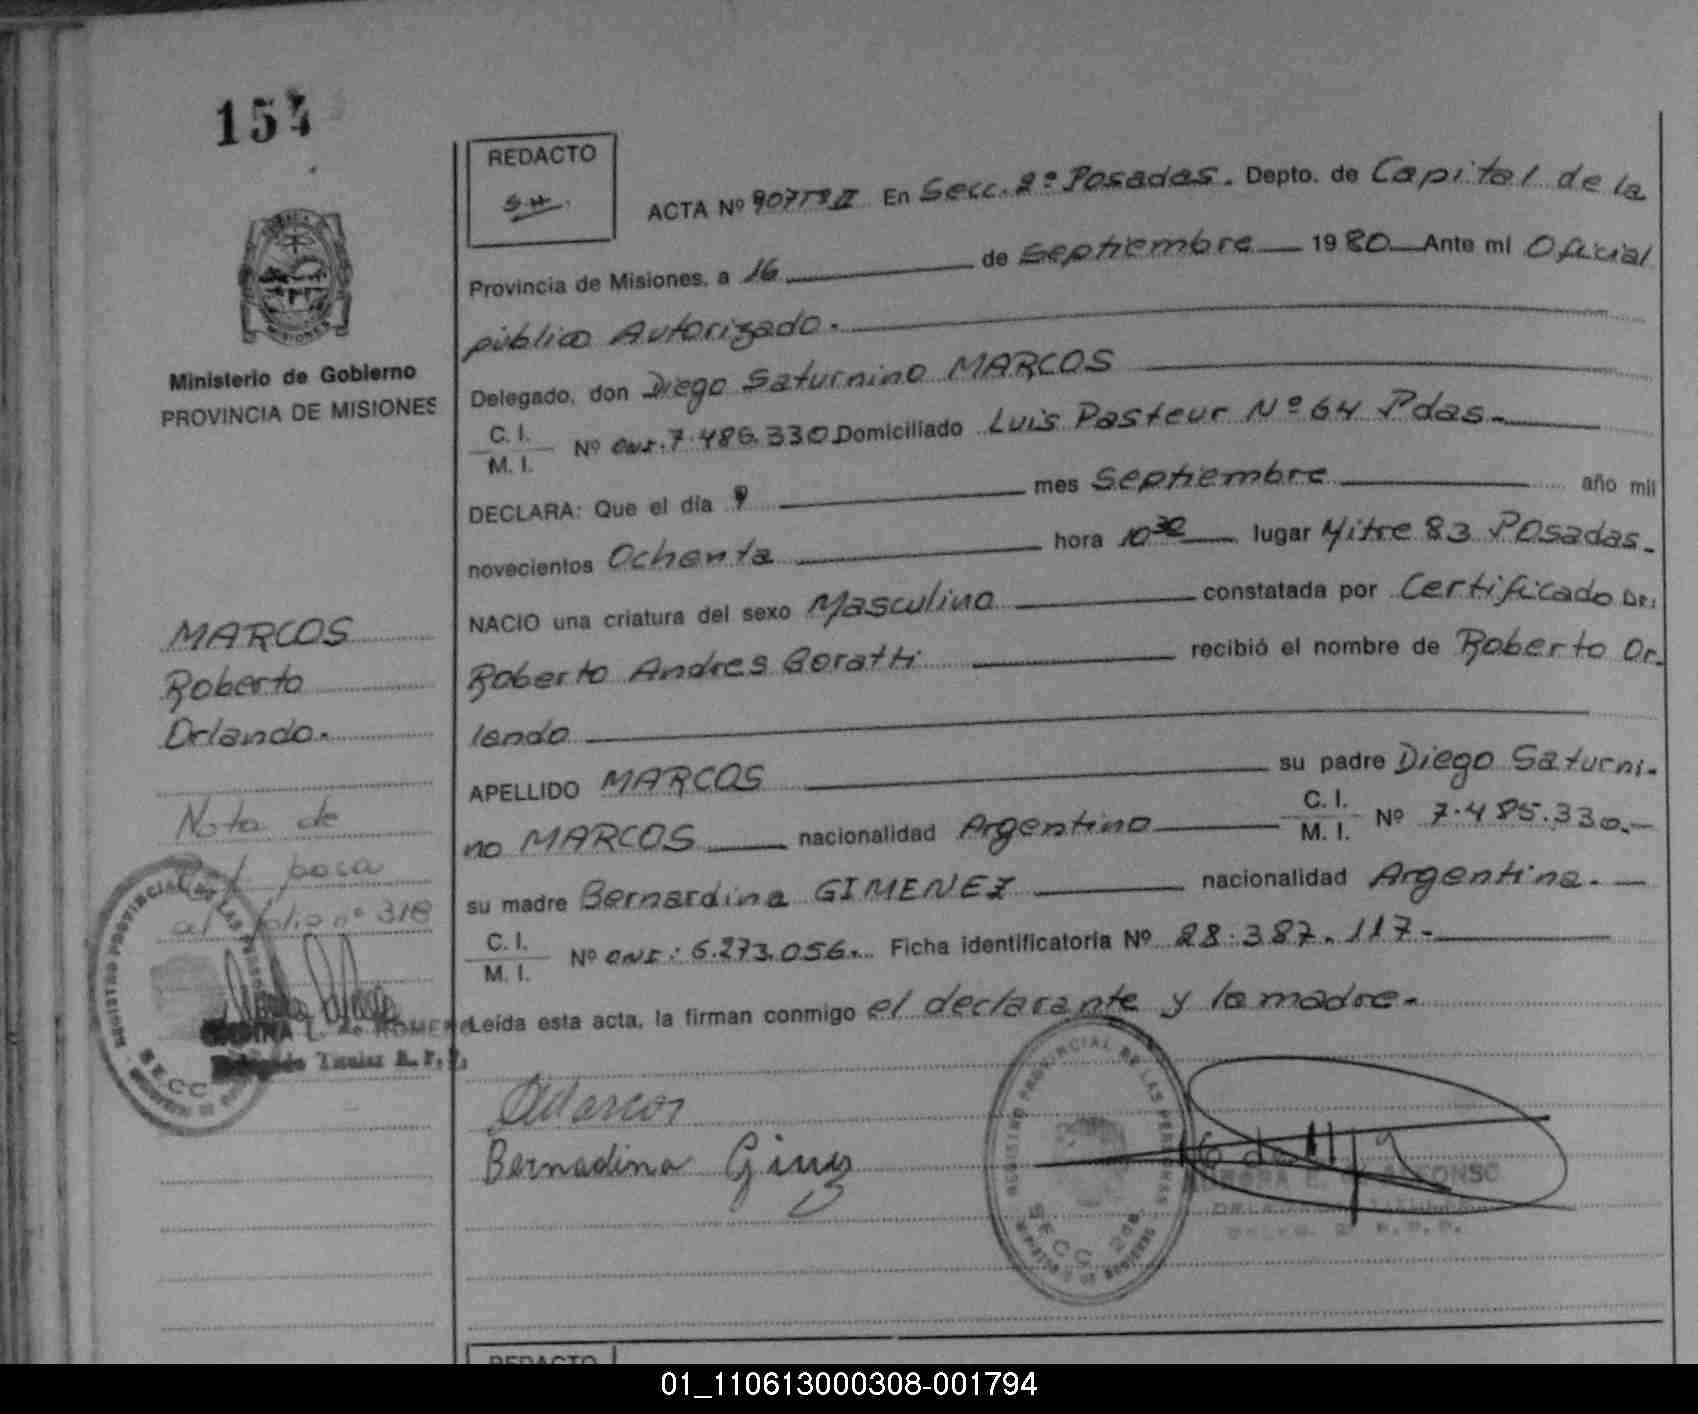 REDACTO
ACTA Nº En Secc. 2º Posadas. Depto. de Capital de la
Provincia de Misiones, a 16 de Septiembre 1980 Ante mí Oficial
público Autorizado.
Delegado, don Diego Saturnino MARCOS
C. I.
M. I.
Nº DNI. 7.485.330 Domiciliado Luis Pasteur Nº 64 Pdas.
DECLARA: Que el día 9 mes Septiembre año mil
novecientos Ochenta hora 10 30 lugar Mitre 83 Posadas.
NACIO una criatura del sexo Masculino constatada por Certificado Dr.
Roberto Andres recibió el nombre de Roberto Or-
lando
APELLIDO MARCOS su padre Diego Saturni-
no MARCOS nacionalidad Argentino C. I. M. I. Nº 7.485.330.-
su madre Bernardina GIMENEZ nacionalidad Argentina.
C. I.
M. I.
Nº DNI: 6.273.056. Ficha identificatoria Nº 28.387.117.-
Leída esta acta, la firman conmigo el declarante y la madre.
Marcos
Bernadina
REGISTRO PROVINCIAL DE LAS PERSONAS
SECC. 2da.
Ministerio de Gobierno
PROVINCIA DE MISIONES
MARCOS
Roberto
Orlando.
Nota de
poca
al folio nº 318
REGISTRO PROVINCIAL DE LAS PERSONAS
SECC
REDACTO
01_110613000308-001794